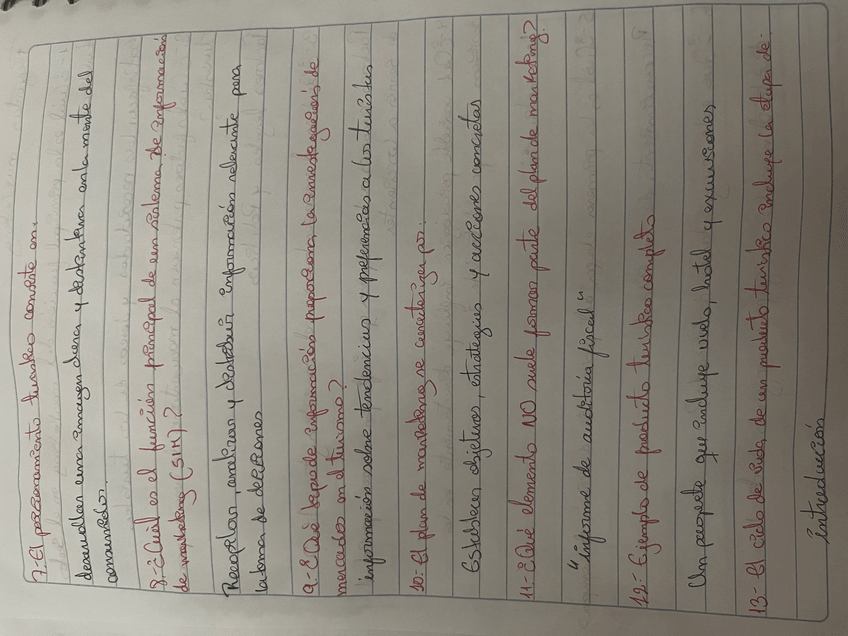 7- El posicionamiento turístico consiste en:
desarrollar una imagen clara y distintiva en la mente del
consumidor.
8- ¿Cuál es el función principal de un sistema de información
de marketing (SIM)?
Recopilar, analizar y distribuir información relevante para
la toma de decisiones
9- ¿Qué tipo de información proporciona la investigación de
mercados en el turismo?
información sobre tendencias y preferencias a los turistas
10- El plan de marketing se caracteriza por:
Establecer objetivos, estrategias y acciones concretas
11- ¿Qué elemento NO suele formar parte del plan de marketing?
"informe de auditoría fiscal"
12- Ejemplo de producto turístico completo
Un paquete que incluye vuelo, hotel y excursiones
13- El ciclo de vida de un producto turístico incluye la etapa de:
introducción